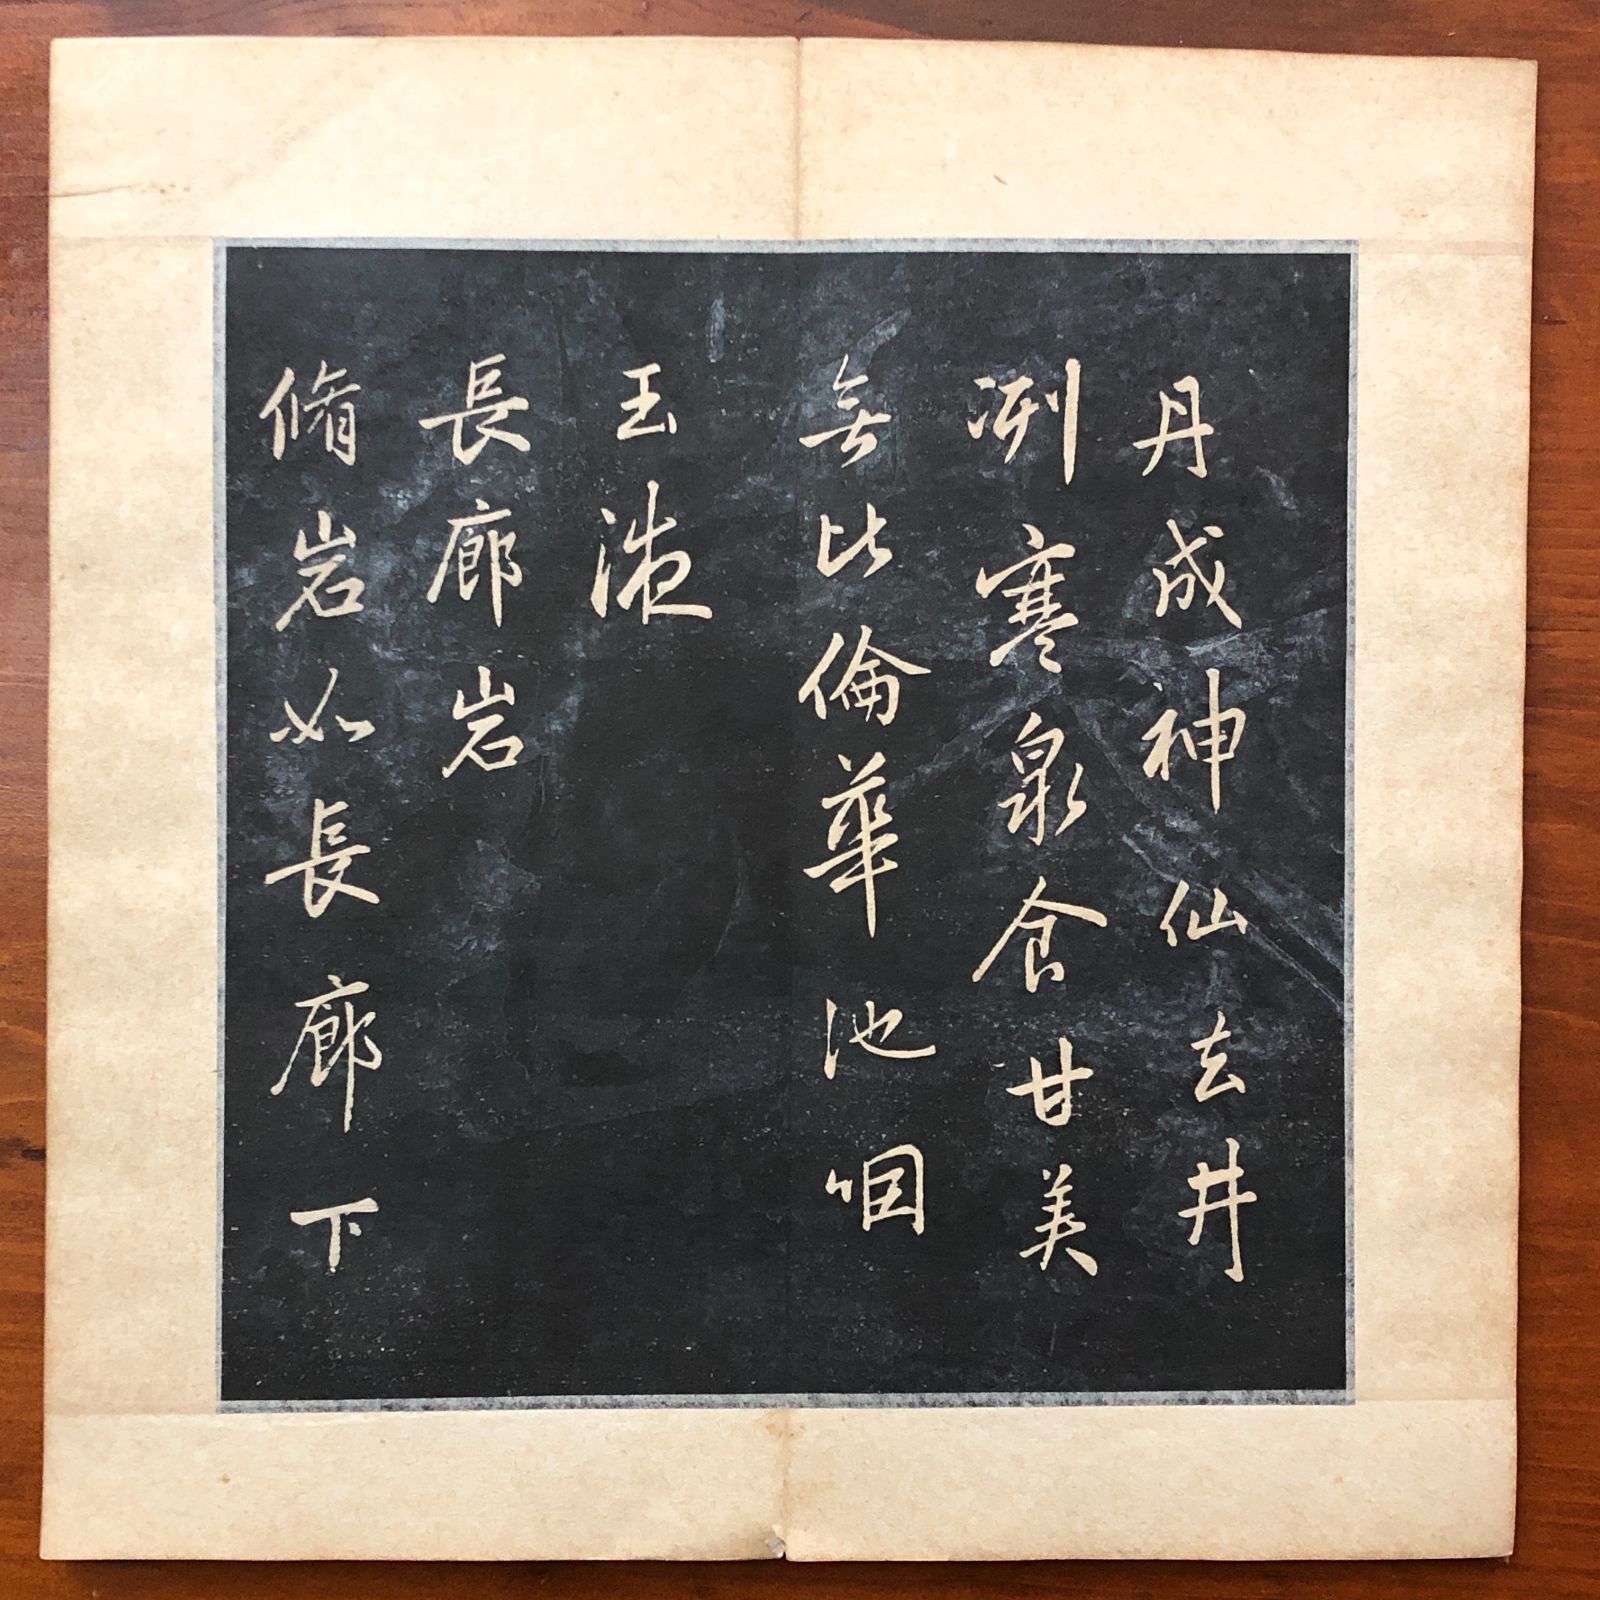 丹成神仙去井
冽寒泉食甘美
無比倫華池咽
玉液
長廊岩
脩岩如長廊下